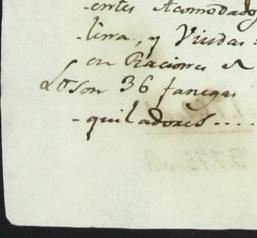 -entes Acomodado
-lina, y Viudas
en Raciones a
son 36 fanegas
-quiladores....